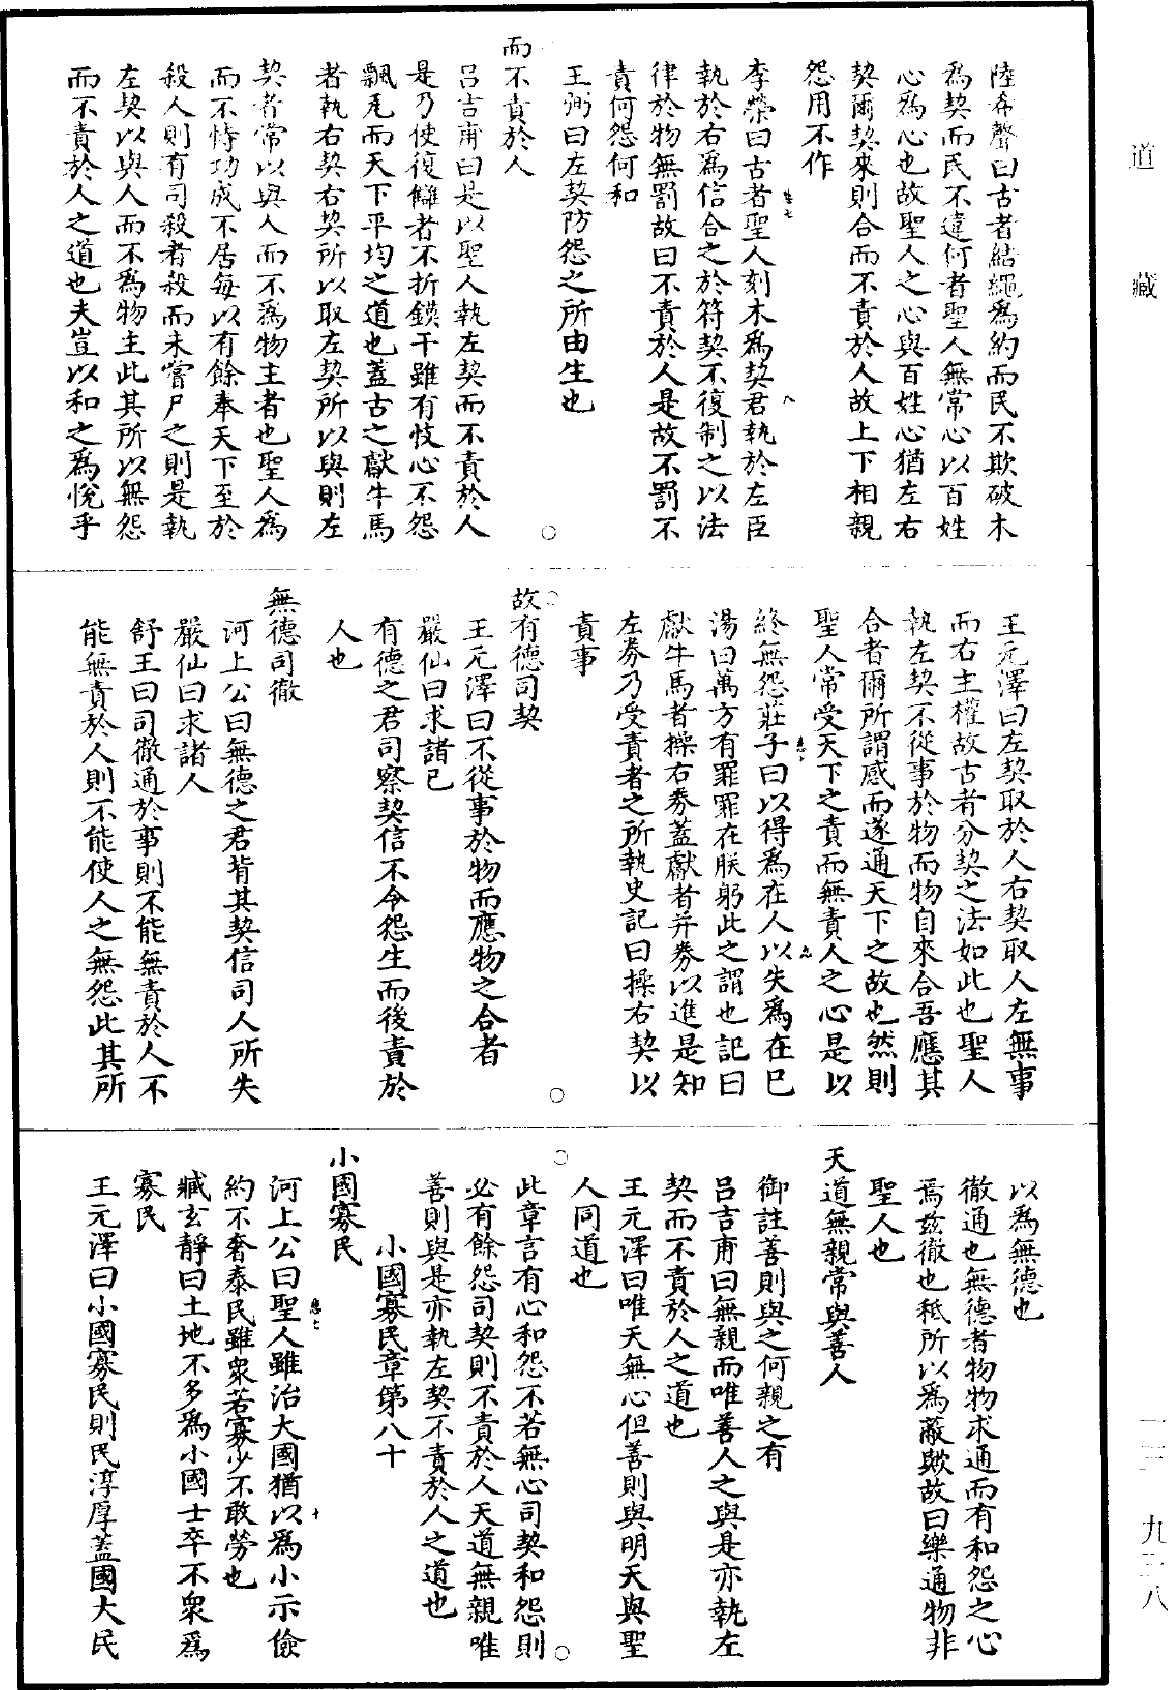 道藏
陸希聲曰古者結繩爲約而民不欺破木
爲契而民不違何者聖人無常心以百姓
心爲心也故聖人之心與百姓心猶左右
契爾契來則合而不責於人故上下相親
怨用不作
李榮曰古者聖人刻木爲契君執於左臣
執於右爲信合之於符契不復制之以法
律於物無罰故曰不責於人是故不罰不
責何怨何和
王弼曰左契防怨之所由生也
而不責於人
呂吉甫曰是以聖人執左契而不責於人
是乃使復讎者不折鏌干雖有忮心不怨
飄瓦而天下平均之道也蓋古之獻牛馬
者執右契右契所以取左契所以與則左
契者常以與人而不爲物主者也聖人爲
而不恃功成不居每以有餘奉天下至於
殺人則有司殺者殺而未嘗尸之則是執
左契以與人而不爲物主此其所以無怨
而不責於人之道也夫豈以和之爲悅乎
王元澤曰左契取於人右契取人左無事
而右主權故古者分契之法如此也聖人
執左契不從事於物而物自來合吾應其
合者爾所謂感而遂通天下之故也然則
聖人常受天下之責而無責人之心是以
終無怨莊子曰以得爲在人以失爲在已
湯曰萬方有罪罪在朕躬此之謂也記曰
獻牛馬者操右劵蓋獻者并劵以進是知
左劵乃受責者之所執史記曰操右契以
責事
故有德司契
王元澤曰不從事於物而應物之合者
嚴仙曰求諸已
有德之君司察契信不令怨生而後責於
人也
無德司徹
河上公曰無德之君背其契信司人所失
嚴仙曰求諸人
舒王曰司徹通於事則不能無責於人不
能無責於人則不能使人之無怨此其所
以爲無德也
徹通也無德者物物求通而有和怨之心
焉茲徹也秪所以爲蔽歟故曰樂通物非
聖人也
天道無親常與善人
御註善則與之何親之有
呂吉甫曰無親而唯善人之與是亦執左
契而不責於人之道也
王元澤曰唯天無心但善則與明天與聖
人同道也
此章言有心和怨不若無心司契和怨則
必有餘怨司契則不責於人天道無親唯
善則與是亦執左契不責於人之道也
小國寡民章第八十
小國寡民
河上公曰聖人雖治大國猶以爲小示儉
約不奢泰民雖衆若寡少不敢勞也
臧玄靜曰土地不多爲小國士卒不衆爲
寡民
王元澤曰小國寡民則民淳厚蓋國大民